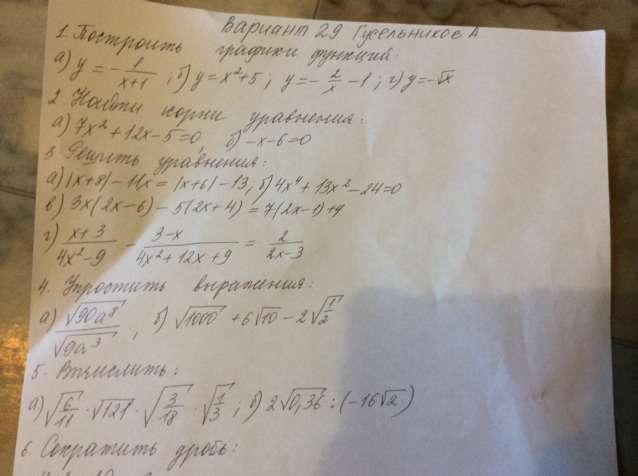 Вариант 29 Гусельников А
1. Построить графики функций:
а) y = -1/(x+1); б) y = x²+5; y = -2/x - 1; г) y = -√x
2. Найти корни уравнения:
а) 7x² + 12x - 5 = 0, б) -x - 6 = 0
3. Решить уравнения:
а) |x+8| - 11x = |x+6| - 13; б) 4x⁴ + 13x² - 24 = 0
в) 3x(2x-6) - 5(2x+4) = 7(2x-1) + 4
г) (x+3)/(4x²-9) - (3-x)/(4x²+12x+9) = 2/(2x-3)
4. Упростить выражения:
а) √90a⁸/√9a³, б) √1000 + 6√10 - 2√(1/2)
5. Вычислить:
а) √(6/11) · √121 · √(3/18) · √(1/3); б) 2√0,36 : (-16√2)
6. Сократить дробь: